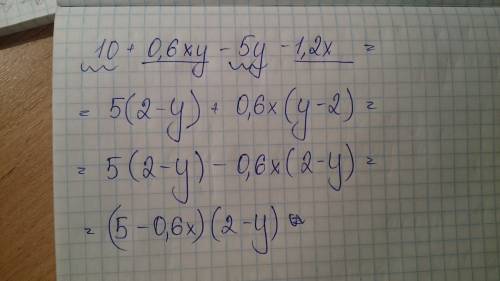 10 + 0,6xy - 5y - 1,2x =
= 5(2-y) + 0,6x(y-2) =
= 5(2-y) - 0,6x(2-y) =
= (5 - 0,6x)(2-y)